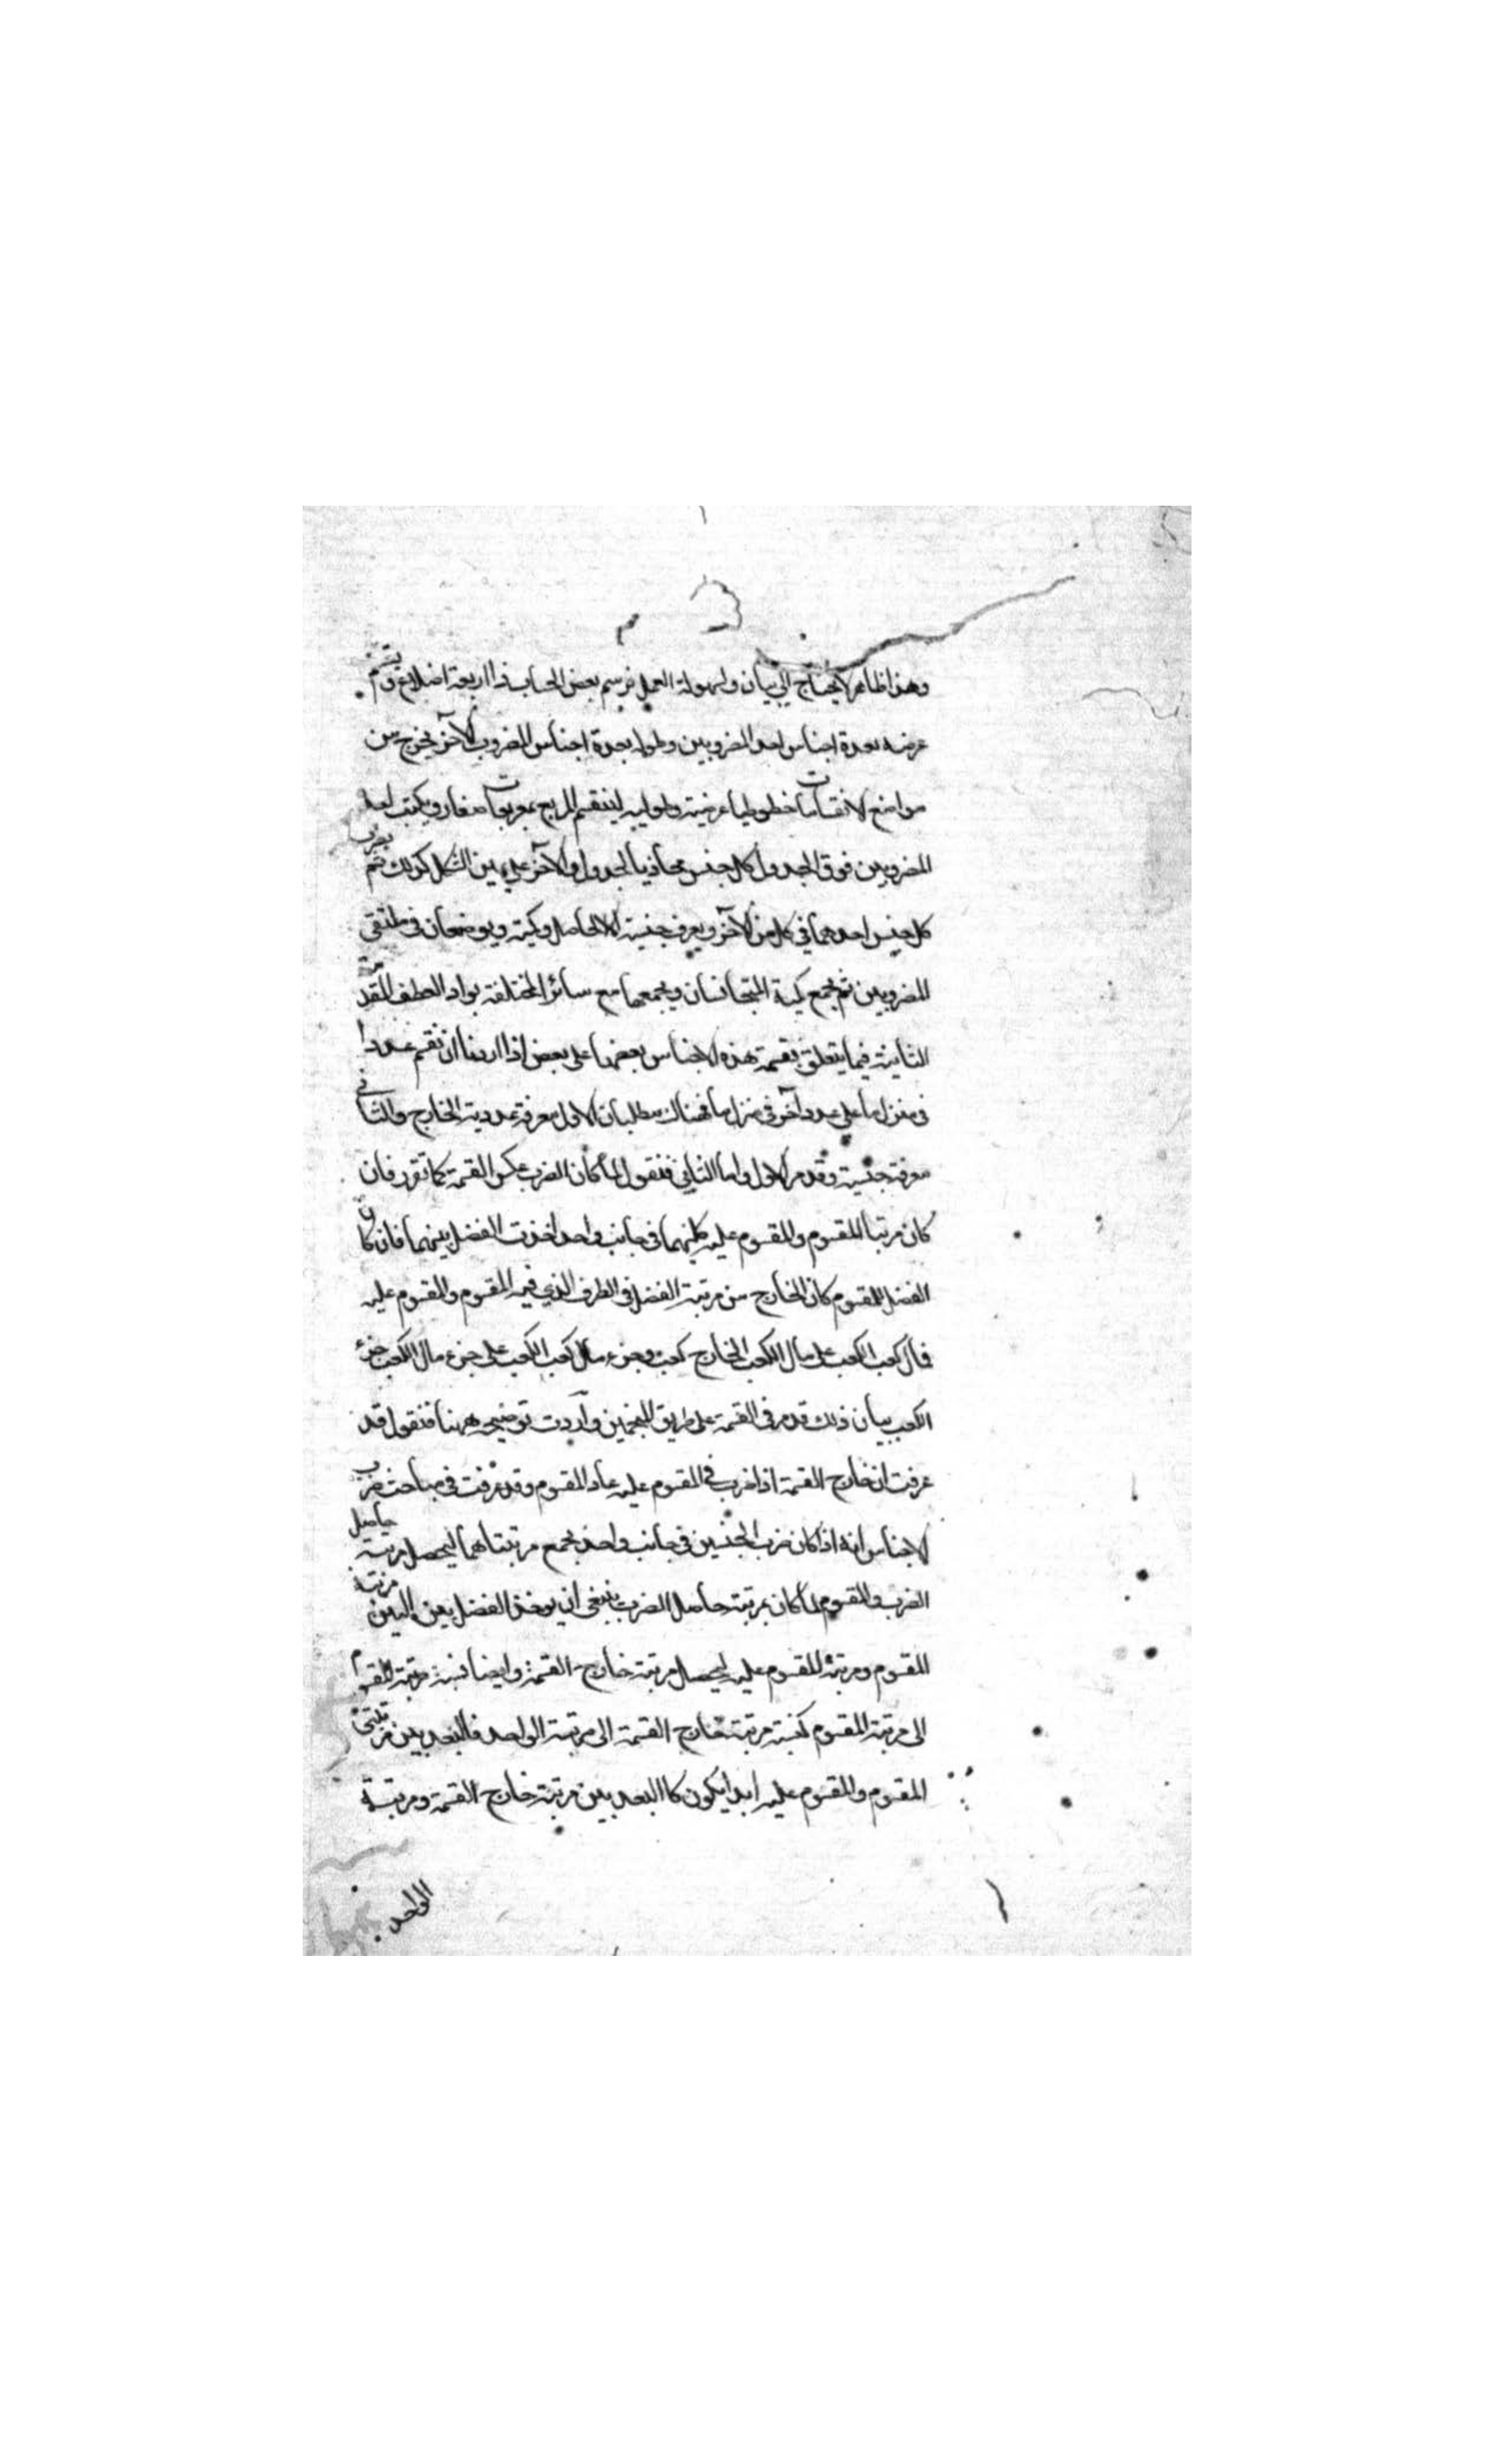 وهذا ظاهر لا يحتاج الي بيان ولسهولة العمل يرسم بعض الحساب ذا اربعة اضلاع ويقسم
عرضه بعدة اجناس احد المضروبين وطوله بعدة اجناس المضروب الآخر يخرج من
مواضع الانقسامات خطوطا عرضية وطولية لينقسم المربع بمربعات صغار ويكتب احد
المضروبين فوق الجدول كل جنس محاذيا لجدول والآخر علي يمين الشكل كذلك ثم يضرب
كل جنس احدهما في كل من الآخر ويعرف جنسية الحاصل وكميته ويوضعان في ملتقى
المضروبين ثم يجمع كمية المتجانسان ويجمعها مع سائر المختلفة بواو العطف المقدمة
الثانية فيما يتعلق بقسمة هذه الاجناس بعضها على بعض اذا اردنا ان نقسم عددا
في منزل ما علي عدد آخر في منزل ما فهناك مطلبان الاول معرفة عددية الخارج والثاني
معرفة جنسية وقد مر الاول واما الثاني فنقول لما كان الضرب عكس القسمة كما تقرر فان
كان مرتبتا المقسوم والمقسوم عليه كليهما في جانب واحد اخذت الفضل بينهما فان كان
الفضل للمقسوم كان الخارج من مرتبة الفضل في الطرف الذي فيه المقسوم والمقسوم عليه
فمال كعب الكعب على مال الكعب الخارج كعب وجزء مال كعب الكعب على جزء مال الكعب جزء
الكعب بيان ذلك قد مر في القسمة على طريق المنجمين واردت توضيحه ههنا فنقول قد
عرفت ان خارج القسمة اذا ضرب في المقسوم عليه عاد المقسوم وقد عرفت في مباحث ضرب
الاجناس انه اذا كان ضرب الجنسين في جانب واحد يجمع مرتبتاهما ليحصل مرتبة حاصل
الضرب والمقسوم لما كان بمرتبة حاصل الضرب ينبغي ان يوخذ الفضل بين مرتبة
المقسوم ومرتبة المقسوم عليه ليحصل مرتبة خارج القسمة وايضا فنسبة مرتبة المقسوم
الى مرتبة المقسوم كنسبة مرتبة خارج القسمة الى مرتبة الواحد فالبعد بين مرتبتي
المقسوم والمقسوم عليه ابدا يكون كالبعد بين مرتبة خارج القسمة ومرتبة
الواحد